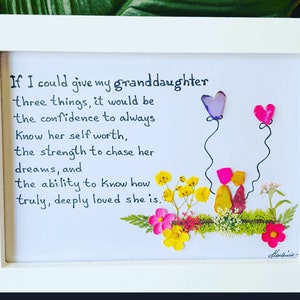 If I could give my granddaughter
three things, it would be
the confidence to always
know her self worth,
the strength to chase her
dreams, and
the ability to know how
truly, deeply loved she is.